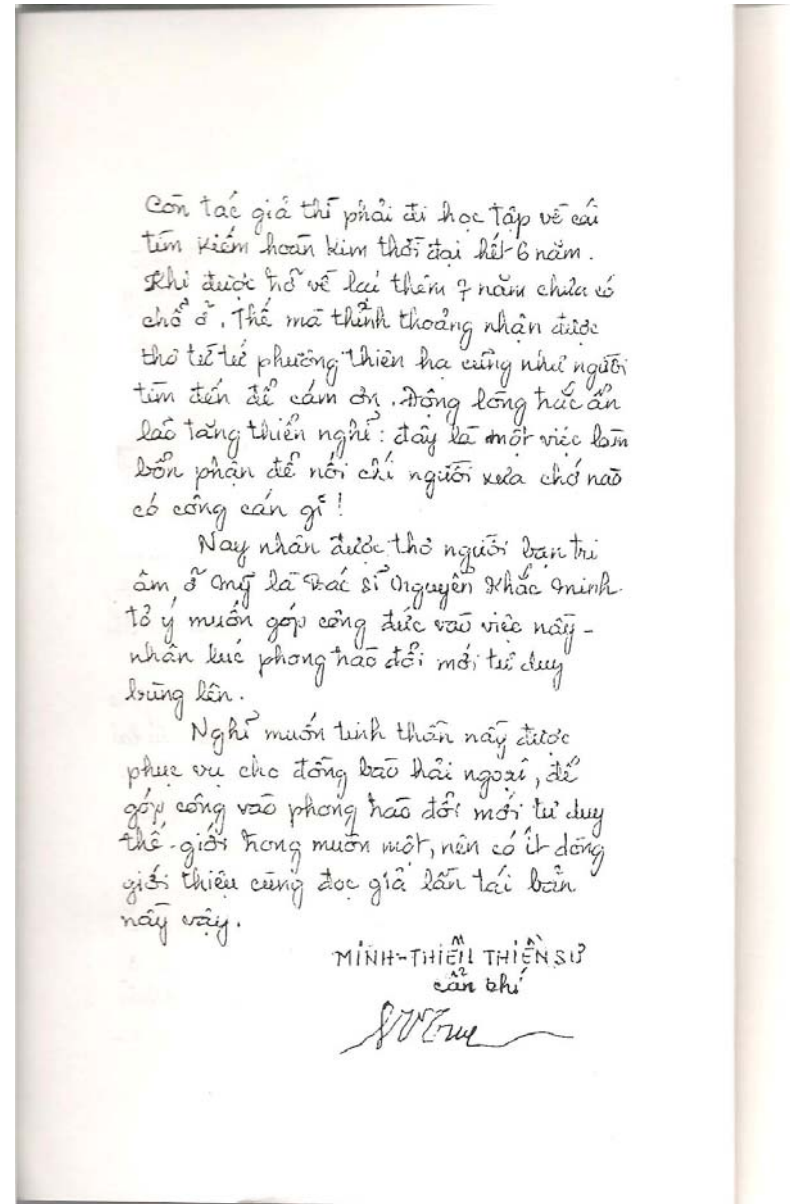 Còn tác giả thì phải đi học tập về cái
tìm kiếm hoàn kim thời đại hết 6 năm.
Khi được trở về lại thêm 7 năm chưa có
chổ ở. Thế mà thỉnh thoảng nhận được
thơ từ tứ phương thiên hạ cũng như người
tìm đến để cám ơn. Động lòng trắc ẩn
lão tăng thiển nghỉ: đây là một việc làm
bổn phận để nối chí người xưa chớ nào
có công cán gì!
Nay nhân được thơ người bạn tri
âm ở Mỹ là Bác sỉ Nguyễn Khắc Minh
tỏ ý muốn góp công đức vào việc nầy -
nhân lúc phong trào đổi mới tư duy
bùng lên.
Nghỉ muốn tinh thần nầy được
phục vụ cho đồng bào hải ngoại, để
góp công vào phong trào đổi mới tư duy
thế-giới trong muôn một, nên có ít dòng
giới thiệu cùng đọc giả lần tái bản
nầy vậy.
MINH-THIỀN THIỀN SƯ
cẩn chí